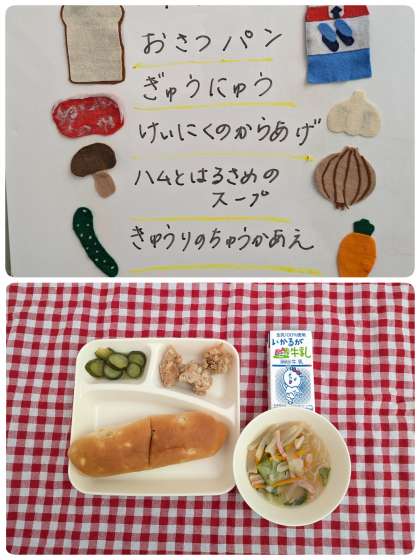 おさつパン
ぎゅうにゅう
けいにくのからあげ
ハムとはるさめの
スープ
きゅうりのちゅうかあえ
いかるが
牛乳